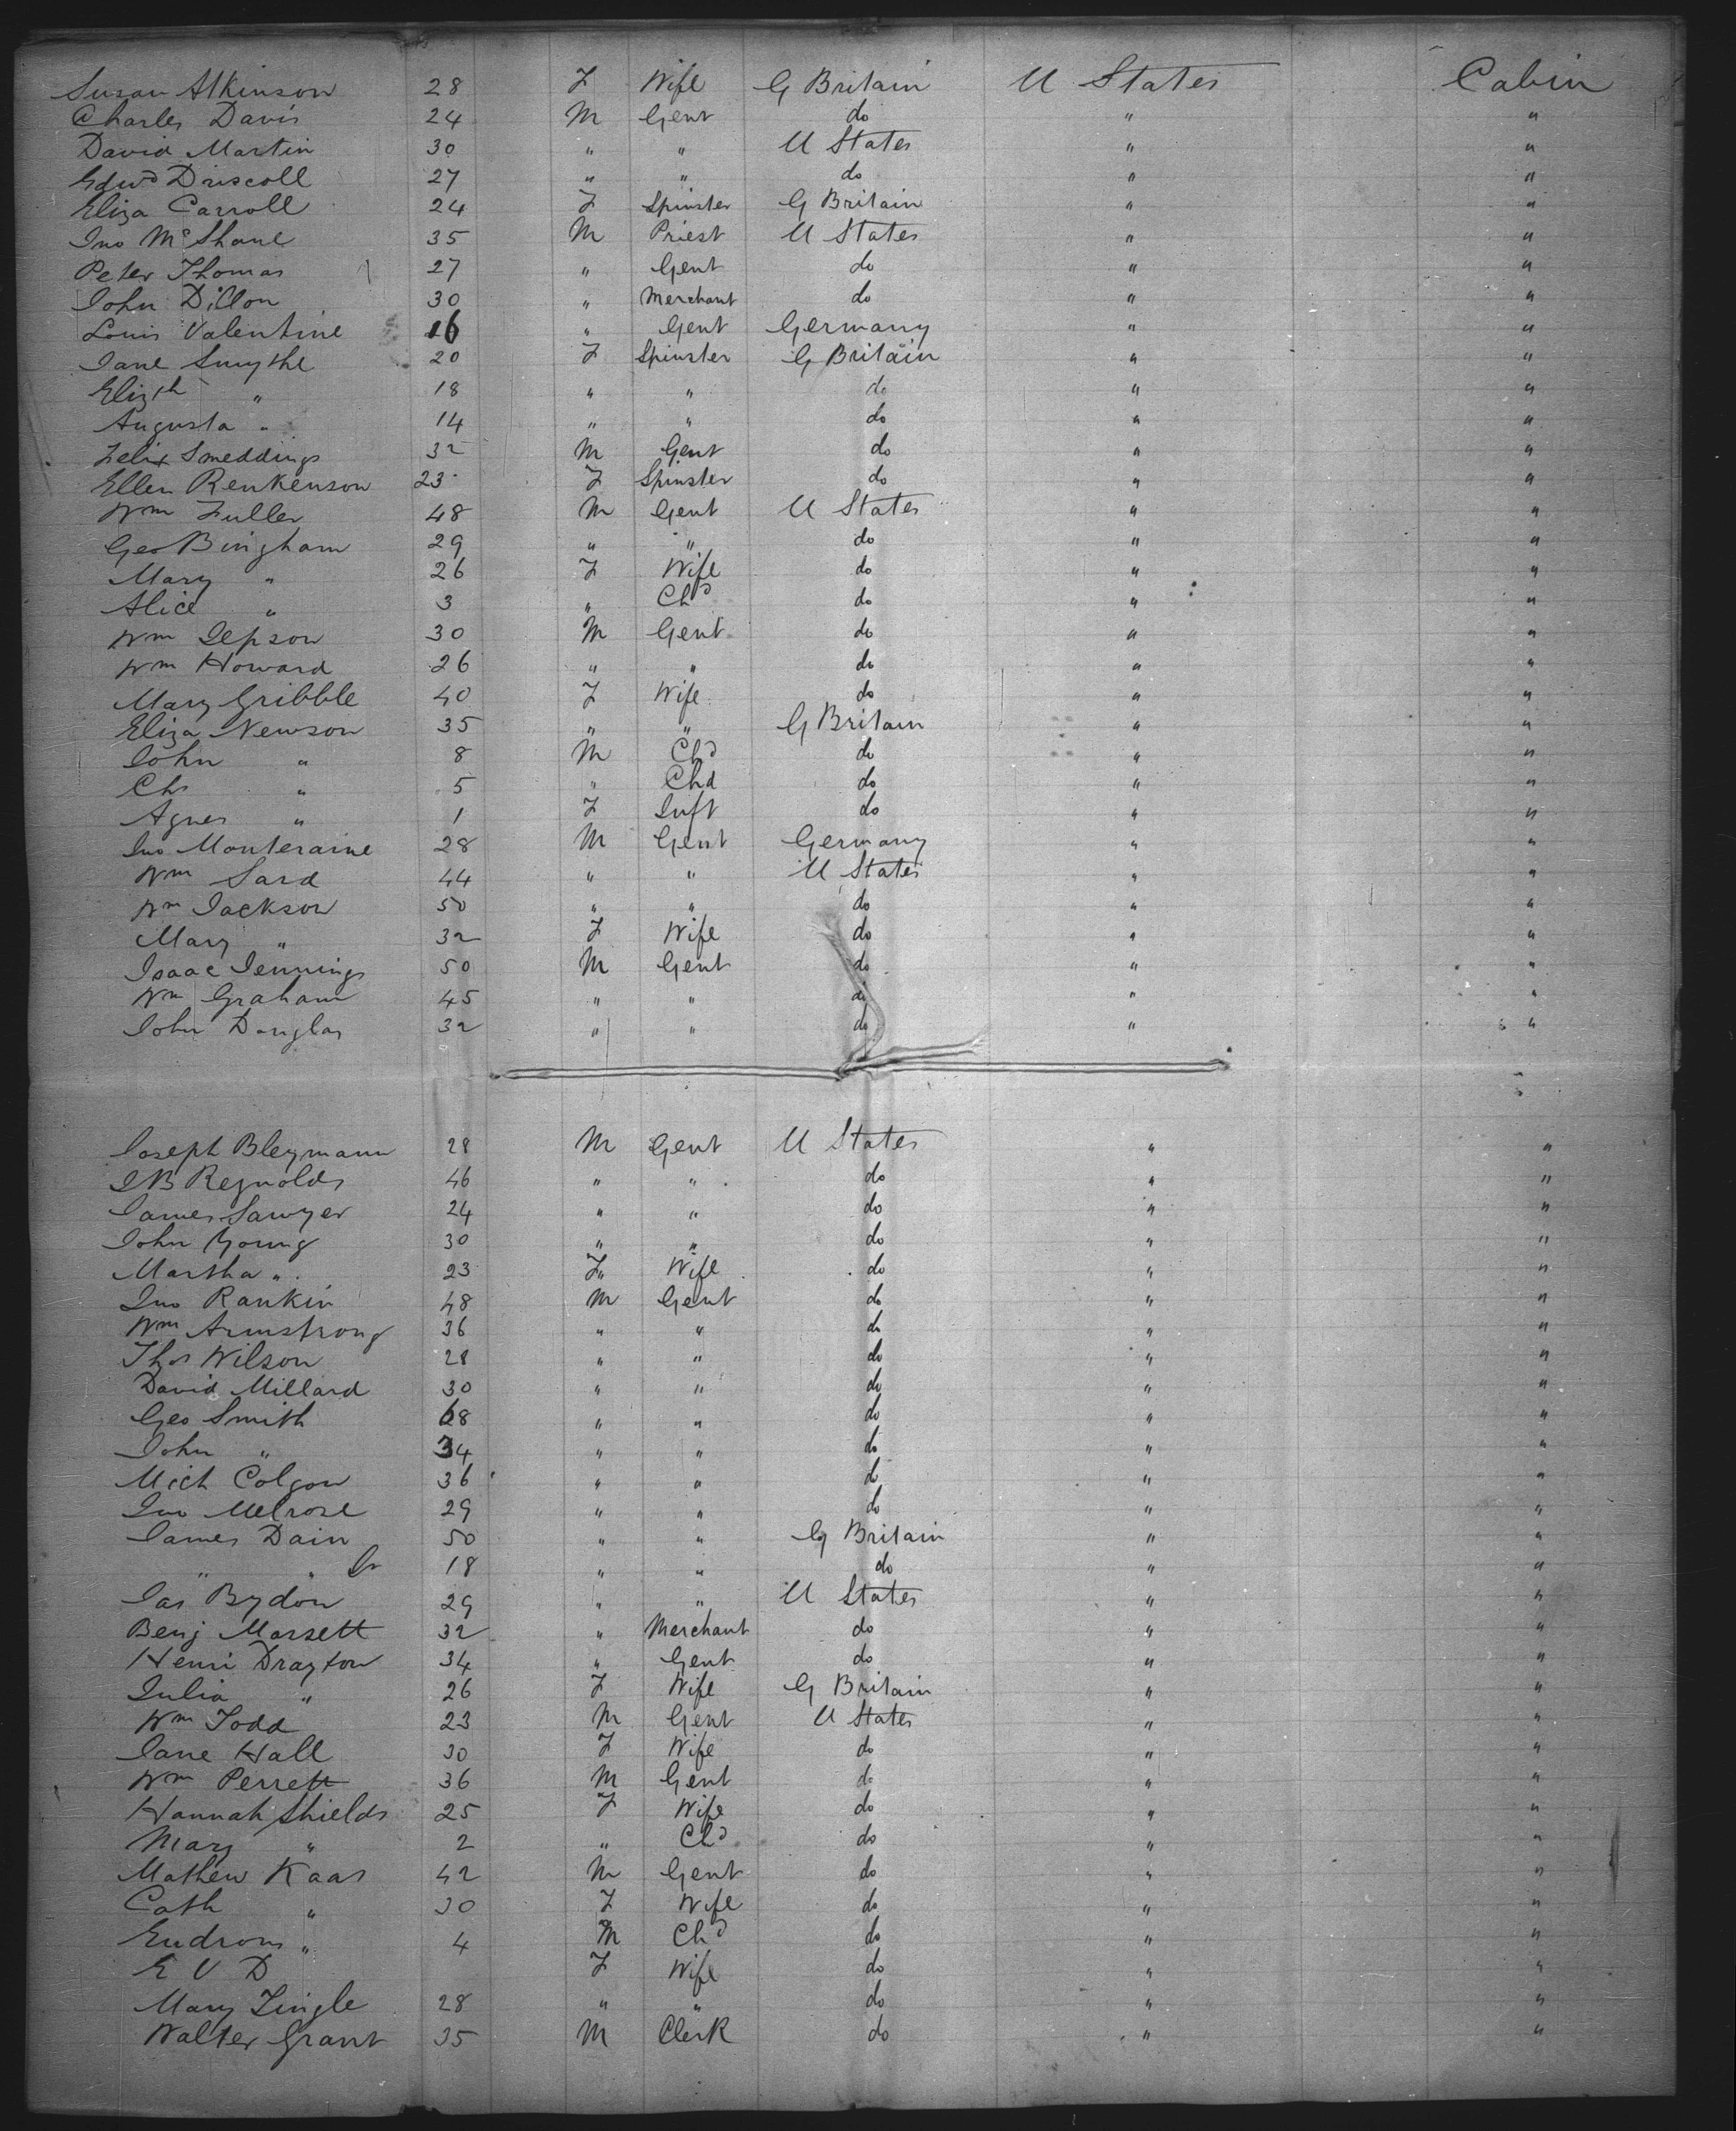 Susan Atkinson 28 F Wife G Britain U States Cabin
Charles Davis 24 M Gent do " "
David Martin 30 " " U States " "
Edwd Driscoll 27 " " do " "
Eliza Carroll 24 F Spinster G Britain " "
Jno McShane 35 M Priest U States " "
Peter Thomas 27 " Gent do " "
John Dillon 30 " Merchant do " "
Louis Valentine 16 " Gent Germany " "
Jane Smythe 20 F Spinster G Britain " "
Elizth " 18 " " do " "
Augusta " 14 " " do " "
Felix Smeddings 32 M Gent do " "
Ellen Renkenson 23 F Spinster do " "
Wm Fuller 48 M Gent U States " "
Geo Bingham 29 " " do " "
Mary " 26 F Wife do " "
Alice " 3 " Chd do " "
Wm Jepson 30 M Gent do " "
Wm Howard 26 " " do " "
Mary Gribble 40 F Wife do " "
Eliza Newson 35 " " G Britain " "
John " 8 M Chd do " "
Chs " 5 " Chd do " "
Agnes " 1 F Inft do " "
Jno Monteraine 28 M Gent Germany " "
Wm Sard 44 " " U States " "
Wm Jackson 50 " " do " "
Mary " 32 F Wife do " "
Isaac Jennings 50 M Gent do " "
Wm Graham 45 " " do " "
John Douglas 32 " " do " "
Joseph Bleymann 28 M Gent U States " "
J B Reynolds 46 " " do " "
James Sawyer 24 " " do " "
John Young 30 " " do " "
Martha " 23 F " Wife do " "
Jno Rankin 48 M Gent do " "
Wm Armstrong 36 " " do " "
Thos Wilson 28 " " do " "
David Millard 30 " " do " "
Geo Smith 68 " " do " "
John " 34 " " do " "
Mich Colgon 36 " " do " "
Jno Melrose 29 " " do " "
James Dain 50 " " G Britain " "
" " Jr 18 " " do " "
Jas Bydon 29 " " U States " "
Benj Marsett 32 " Merchant do " "
Henri Drayton 34 " Gent do " "
Julia " 26 F Wife G Britain " "
Wm Todd 23 M Gent U States " "
Jane Hall 30 F Wife do " "
Wm Perrett 36 M Gent do " "
Hannah Shields 25 F Wife do " "
Mary " 2 " Chd do " "
Mathew Kaas 42 M Gent do " "
Cath " 30 F Wife do " "
" 4 M Chd do " "
E V D F Wife do " "
Mary Fingle 28 " " do " "
Walter Grant 35 M Clerk do " "